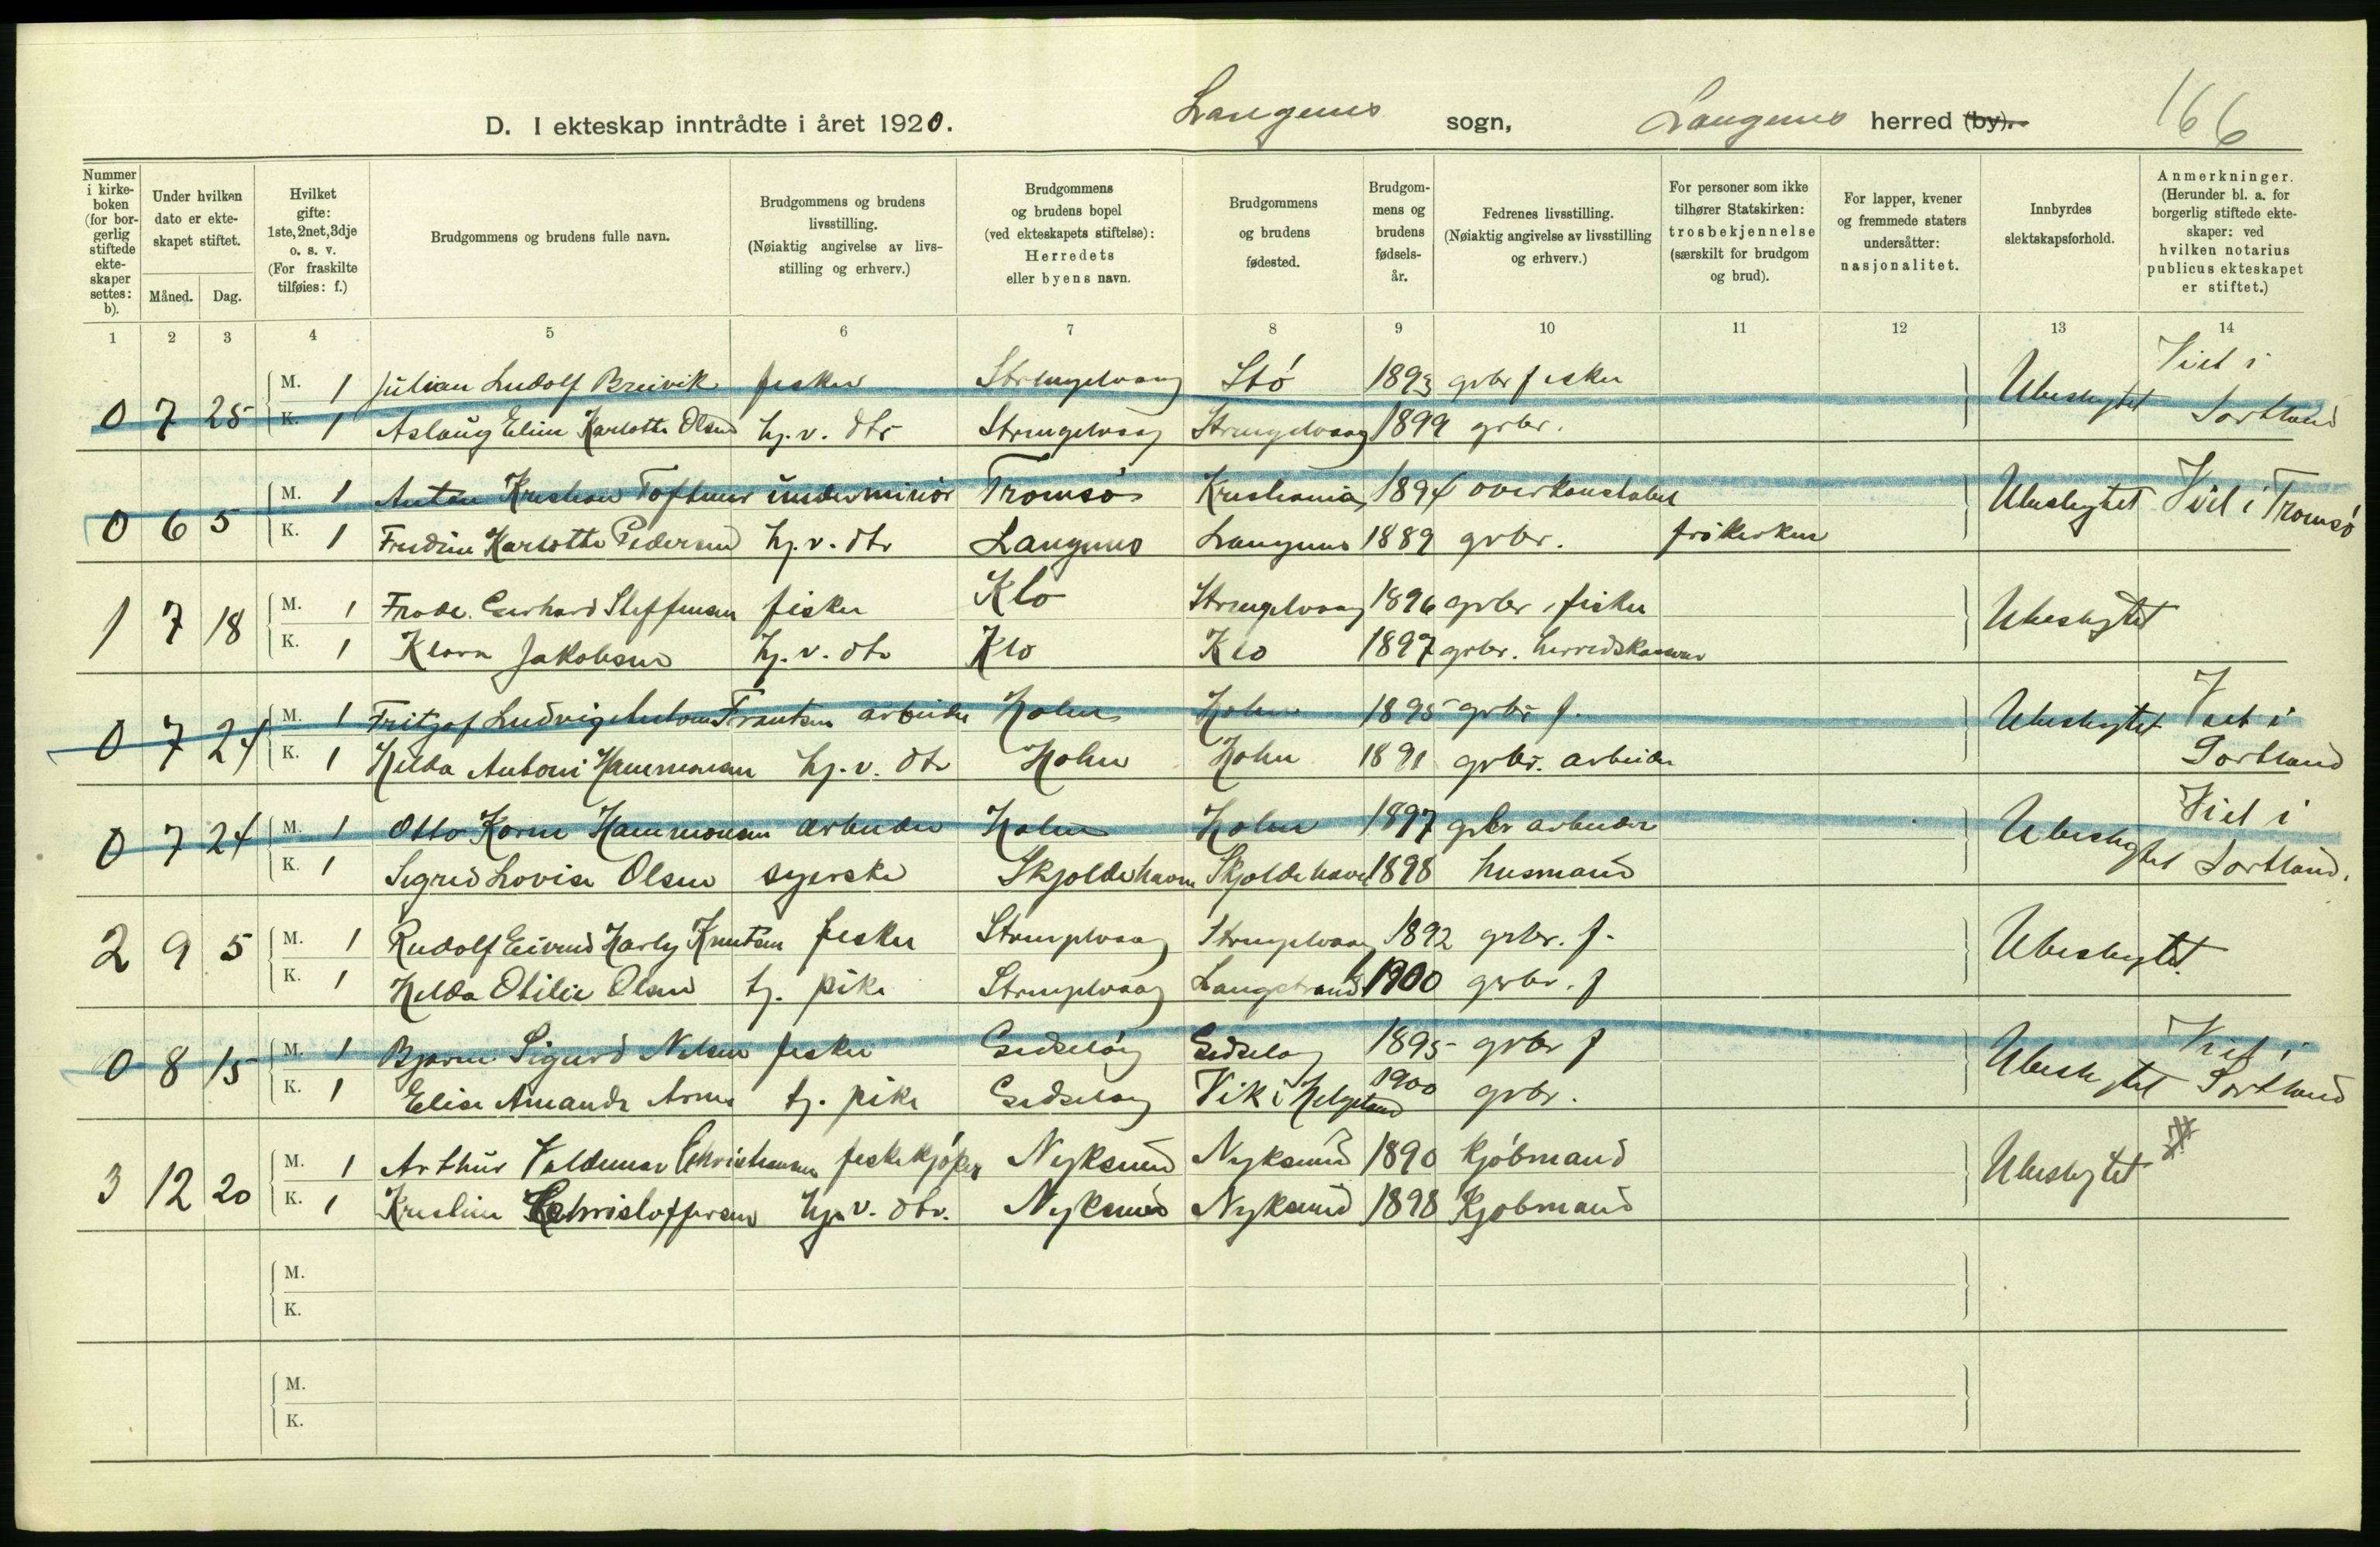 D. I ekteskap inntrådte i året 1920. Langenes sogn, Langenes herred (by). 166
Nummer i kirkeboken (for borgerlig stiftede ekteskaper settes: b).
Under hvilken dato er ekteskapet stiftet.
Måned. Dag.
Hvilket gifte: 1ste, 2net, 3dje o. s. v. (For fraskilte tilføies: f.)
Brudgommens og brudens fulle navn.
Brudgommens og brudens livsstilling. (Nøiaktig angivelse av livsstilling og erhverv.)
Brudgommens og brudens bopel (ved ekteskapets stiftelse): Herredets eller byens navn.
Brudgommens og brudens fødested.
Brudgommens og brudens fødselsår.
Fedrenes livsstilling. (Nøiaktig angivelse av livsstilling og erhverv.)
For personer som ikke tilhører Statskirken: trosbekjennelse (særskilt for brudgom og brud).
For lapper, kvener og fremmede staters undersåtter: nasjonalitet.
Innbyrdes slektskapsforhold.
Anmerkninger. (Herunder bl. a. for borgerlig stiftede ekteskaper: ved hvilken notarius publicus ekteskapet er stiftet.)
1 2 3 4 5 6 7 8 9 10 11 12 13 14
0 7 25 M. 1 Julian Ludolf Breivik fisker Strengelvaag Stö 1893 grbr fisker Ubeslegtet Viet i Sortland
K. 1 Aslaug Eline Karlotte Olsen hj. v. dtr Strengelvaag Strengelvaag 1899 grbr.
0 6 5 M. 1 Anton Kristian Toftener underminör Tromsö Kristiania 1894 overkonstabel Ubeslegtet Viet i Tromsö
K. 1 Fredrine Karlotte Pedersen hj. v. dtr Langenes Langenes 1889 grbr. frikirken
1 7 18 M. 1 Frode Gerhard Steffensen fisker Klo Strengelvaag 1896 grbr. fisker Ubeslegtet
K. 1 Klara Jakobsen hj. v. dtr Klo Klo 1897 grbr. herredskasserer
0 7 24 M. 1 Fritzof Ludvig Anton Frantsen arbeider Holm Holm 1895 grbr f. Ubeslegtet Viet i Sortland
K. 1 Hilda Antoni Hammonsen hj. v. dtr Holm Holm 1891 grbr. arbeider
0 7 24 M. 1 Otto Korne Hammonsen arbeider Holm Holm 1897 grbr arbeider Ubeslegtet Viet i Sortland.
K. 1 Sigrid Lovise Olsen syerske Skjoldehavn Skjoldehavn 1898 husmand
2 9 5 M. 1 Rudolf Eivind Harly Knutsen fisker Strengelvaag Strengelvaag 1892 grbr. f. Ubeslegtet.
K. 1 Helda Otilie Olsen tj. pike Strengelvaag Langstrand 1900 grbr. f
0 8 15 M. 1 Bjarne Sigurd Nilsen fisker Gidselöy Gidselöy 1895 grbr f Ubeslegtet Viet i Sortland
K. 1 Elise Amanda tj. pike Gidselöy Vik i Helgeland 1900 grbr.
3 12 20 M. 1 Arthur Valdemar Christiansen fiskekjöper Nyksund Nyksund 1890 Kjöbmand Ubeslegtet #
K. 1 Kristine Christoffersen hj. v. dtr. Nyksund Nyksund 1898 Kjöbmand
M.
K.
M.
K.